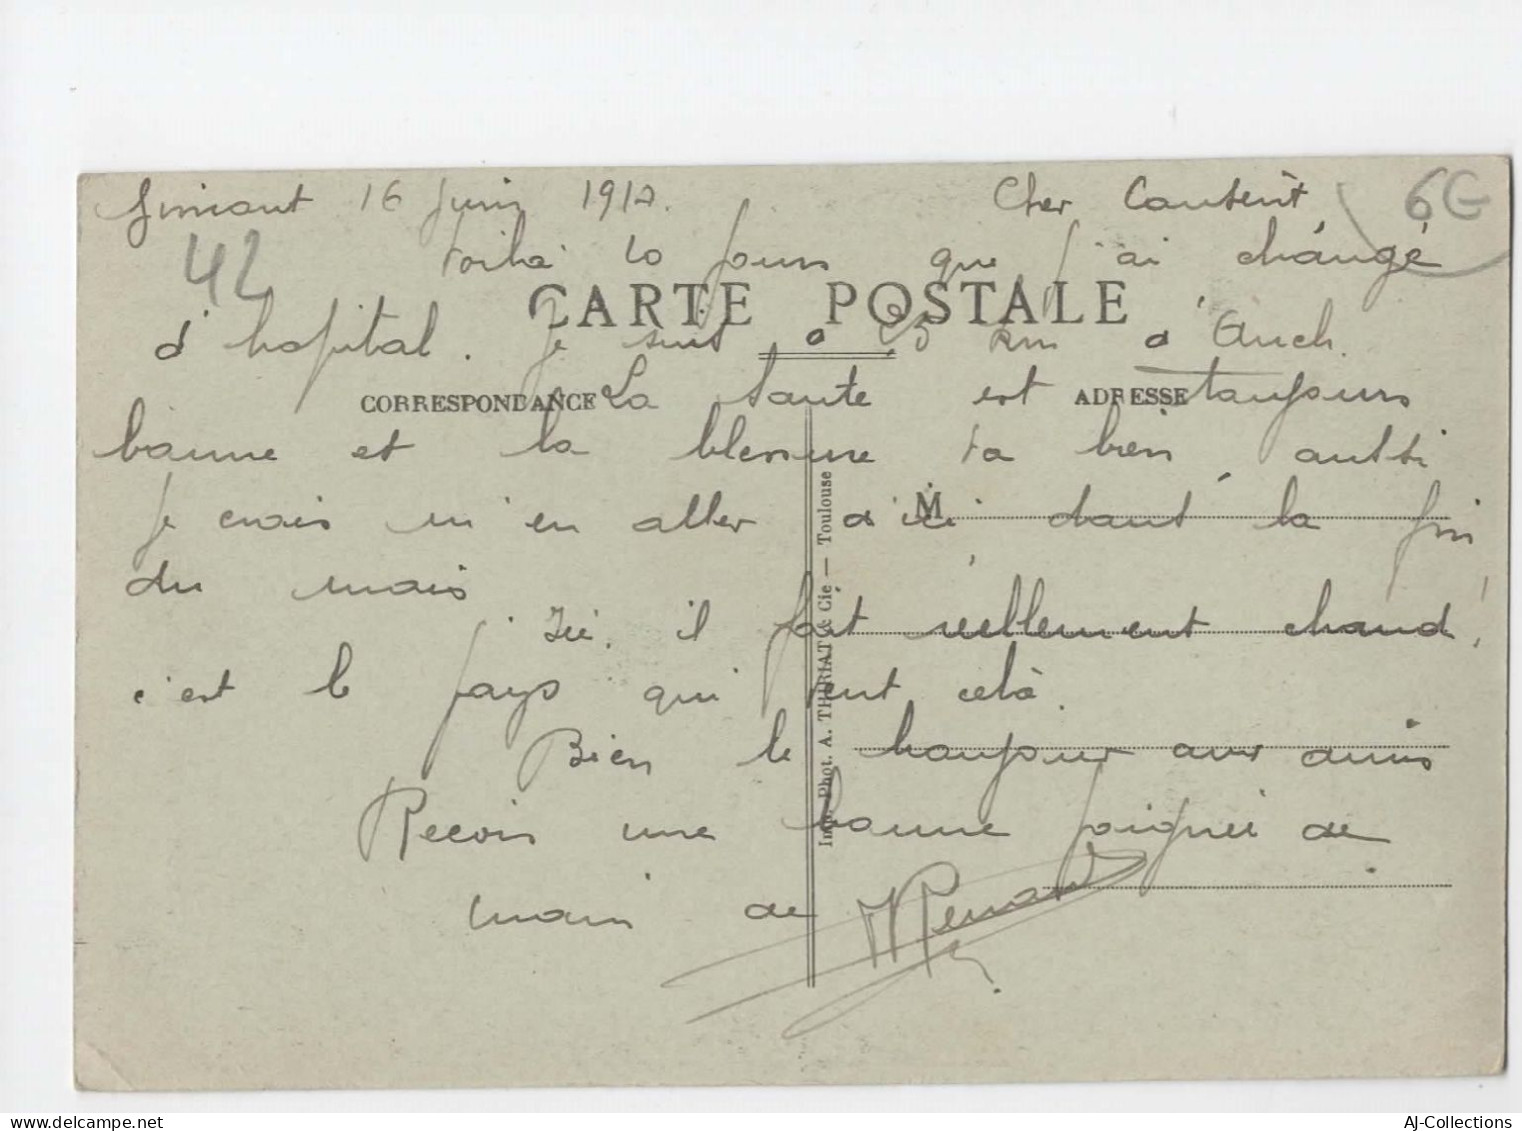 Gimont 16 Juin 1917. Cher
6G
42
Voilà 10 jours que j'ai changé
CARTE POSTALE
d'hopital. Je suis a 25 km d'Auch.
CORRESPONDANCE
ADRESSE
La santé est toujours
bonne et la blessure va bien, aussi
M
je crois m'en aller d'ici dans la fin
du mois
Ici il fait réellement chaud,
c'est le pays qui veut celà.
Bien le bonjour aux amis
Recois une bonne poignée de
main de
Imp. Phot. A. THIRIAT & Cie — Toulouse
AJ-Collections